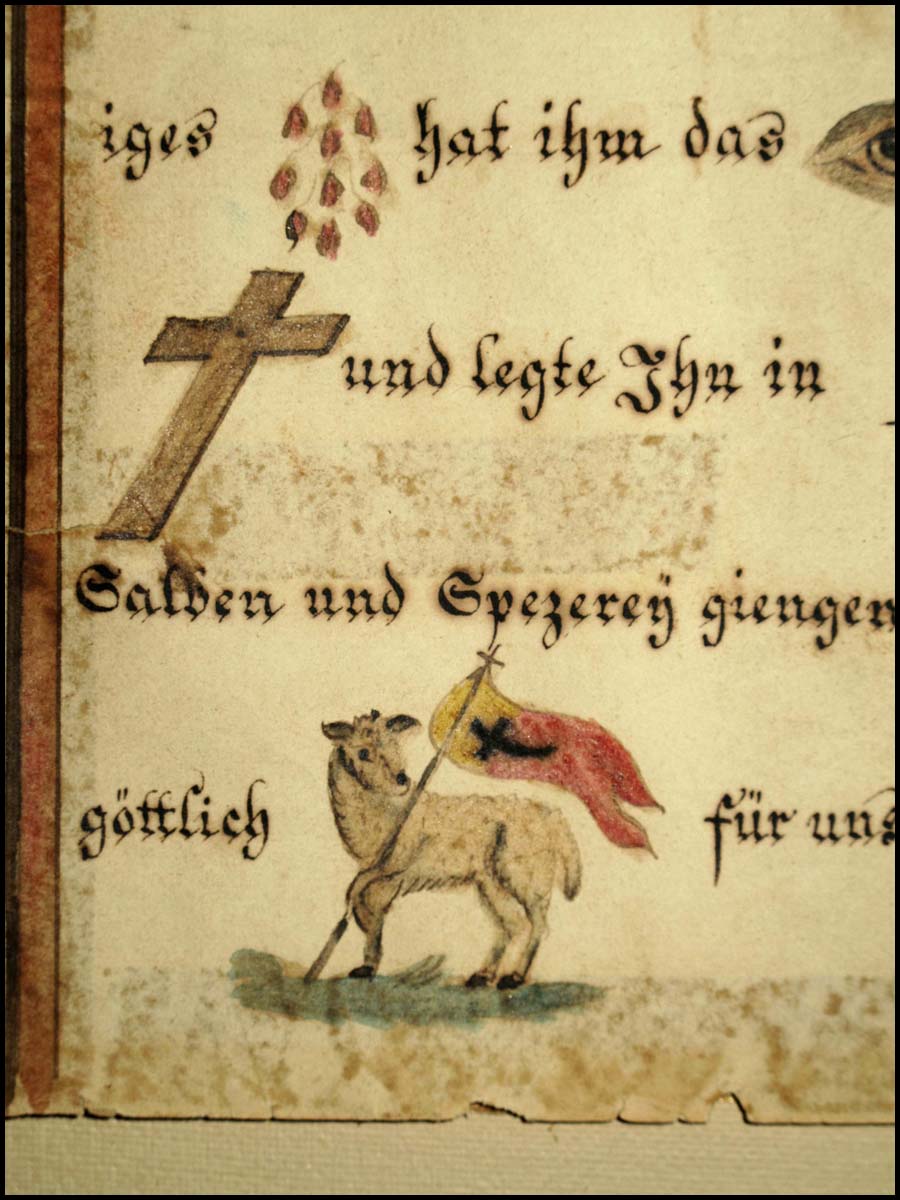 iges hat ihm das
und legte Ihn in
Salben und Spezereÿ giengen
göttlich für uns